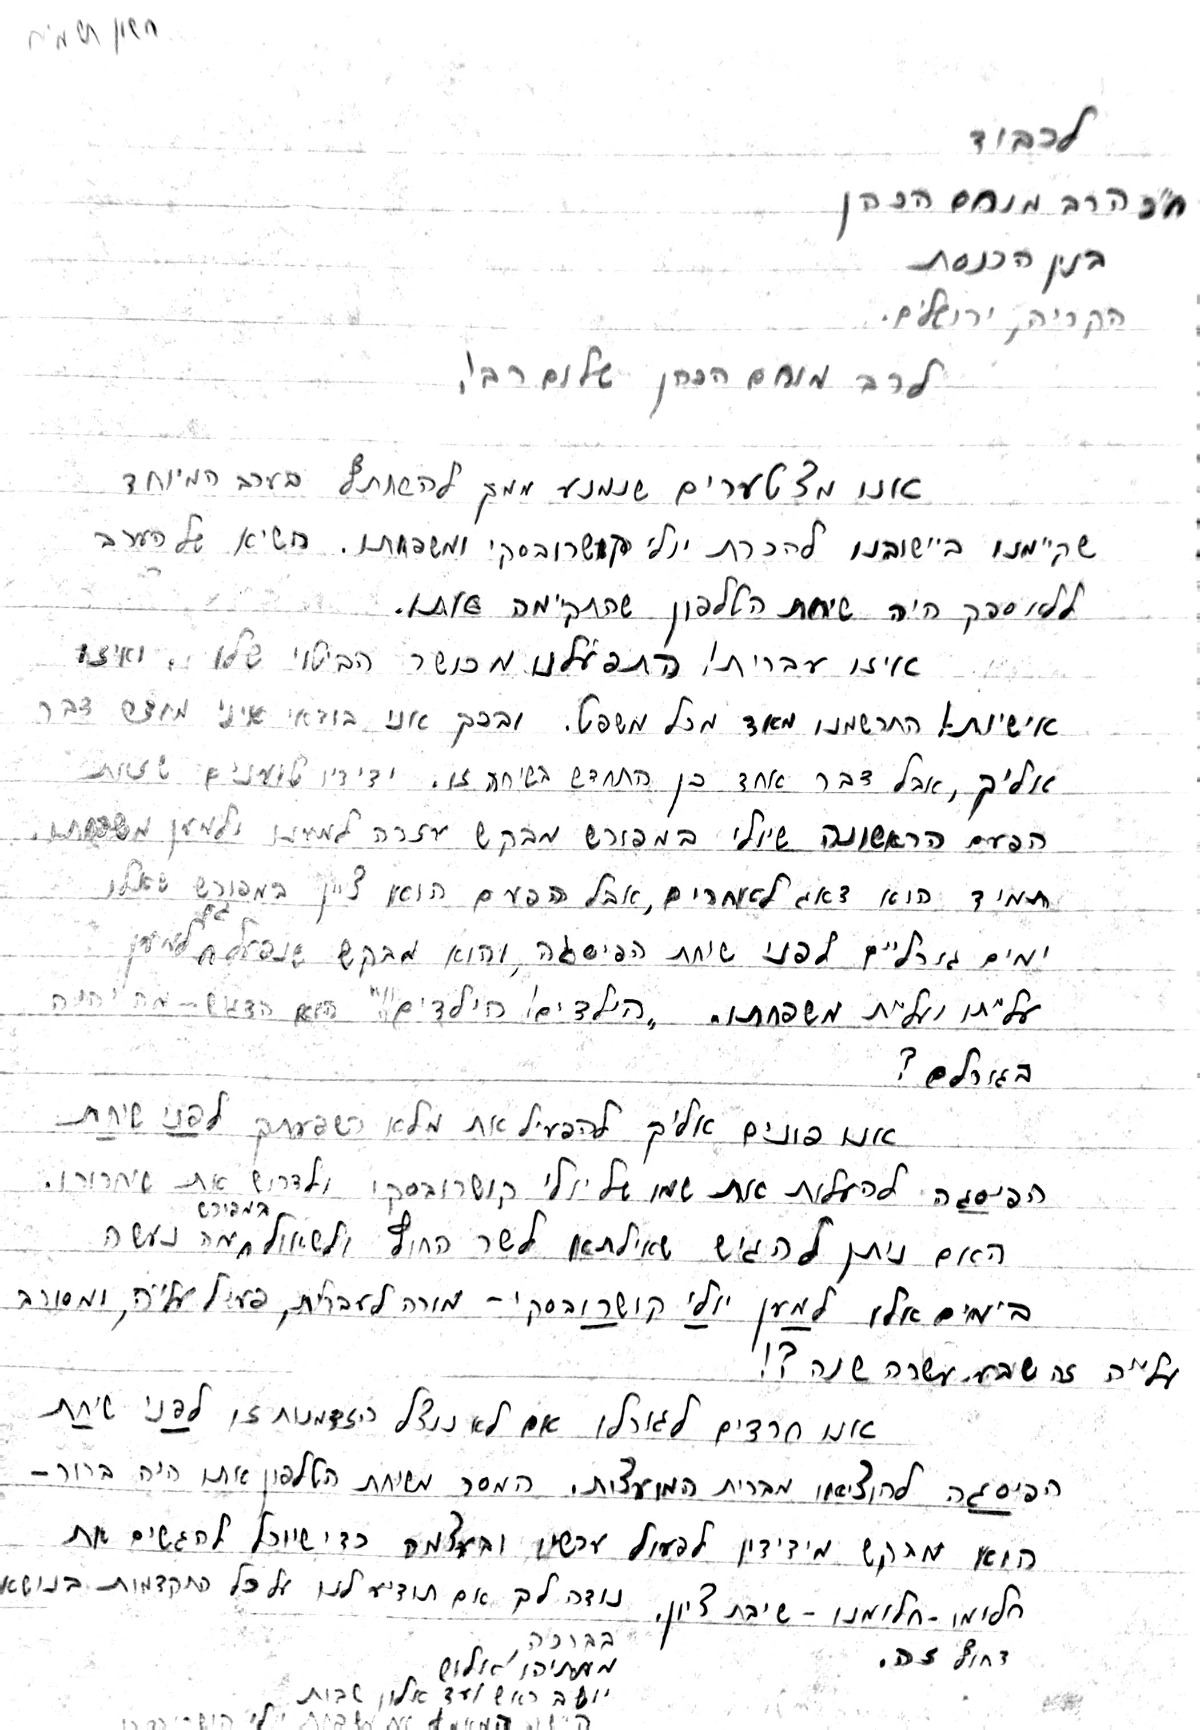 חשון תשמ"ח
לכבוד
ח"כ הרב מנחם הכהן
בנין הכנסת
הקריה, ירושלים.
לרב מנחם הכהן שלום רב!,
אנו מצטערים שנמנע ממך להשתתף בערב המיוחד
שקיימנו ביישובנו להכרת יולי קושרובסקי ומשפחתו. השיא של הערב
ללא ספק היה שיחת הטלפון שהתקיימה אותו.
איזו עברית! התפעלנו מכושר הביטוי שלו .. ואיזו
אישיות! התרשמנו מאד מכל משפט. ובכך אני בודאי איני מחדש דבר
אליך, אבל דבר אחד כן התחדש בשיחה זו. ידידיו טוענים שזאת
הפעם הראשונה שיולי במפורש מבקש עזרה למענו ולמען משפחתו.
תמיד הוא דאג לאחרים, אבל הפעם הוא ציין במפורש שאלו
ימים גורליים לפני שיחת הפיסגה, והוא מבקש שנפעל גם למען
עלייתו ועליית משפחתו. "הילדים! הילדים!!" הוא הדגש – מה יהיה
בגורלם?
אנו פונים אליך להפעיל את מלא השפעתך לפני שיחת
הפיסגה להעלות את שמו של יולי קושרובסקי ולדרוש את שיחרורו.
האם ניתן להגיש שאילתא לשר החוץ ולשאול במפורש מה נעשה
בימים אלו למען יולי קושרובסקי – מורה לעברית, פעיל עלייה, ומסורב
עלייה זה שבע עשרה שנה?!
אנו חרדים לגורלו אם לא ננצל הזדמנות זו לפני שיחת
הפיסגה להוציאו מברית המועצות. המסר משיחת הטלפון אתו היה ברור –
הוא מבקש מידידיו לפעול עכשיו ובעצמה כדי שיוכל להגשים את
חלומו – חלומנו – שיבת ציון. נודה לך אם תודיע לנו על כל התקדמות בנושא
דחוף זה.
בברכה,
מתתיהו
יושב ראש ועד אלון שבות
משפחת יולי קושרובסקי